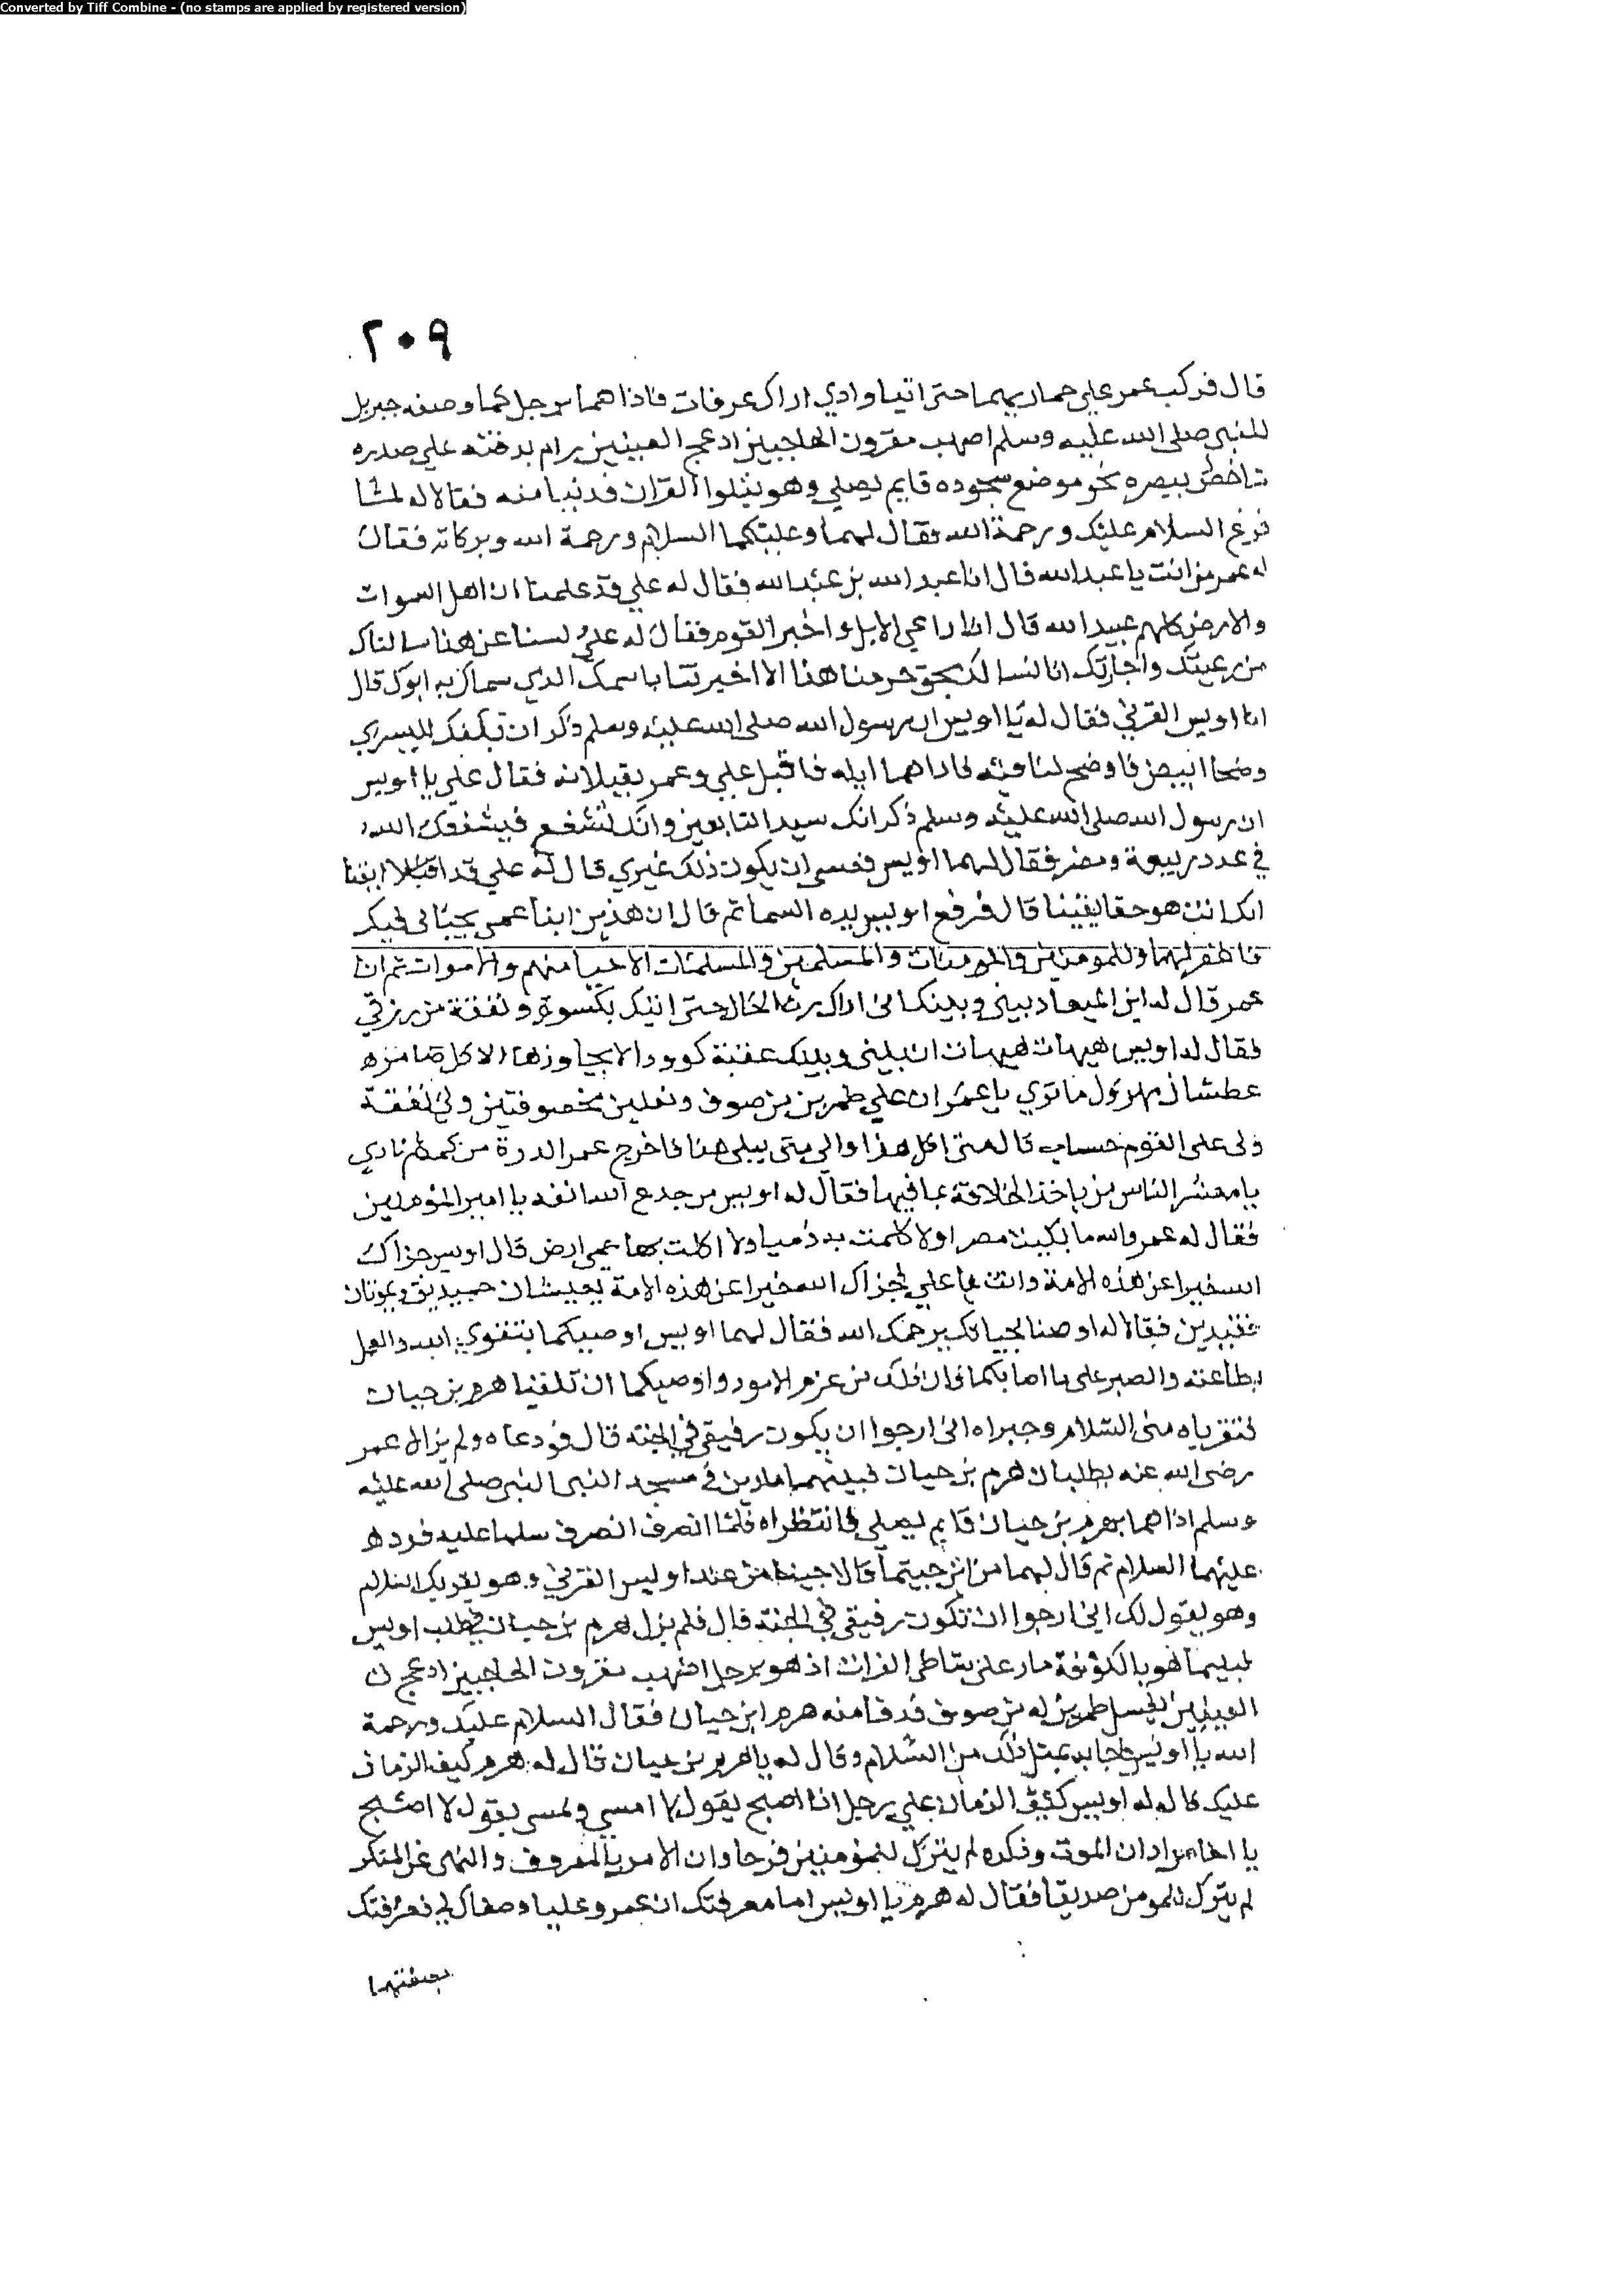 Converted by Tiff Combine - (no stamps are applied by registered version)
٢٠٩
قال فركب عمر علي حماريهما حتى اتيا وادي اراك عرفات فاذا هما برجل كما وصفه جبريل
للنبي صلى الله عليه وسلم اصهب مقرون الحاجبين ادعج العينين رام بدقنه علي صدره
شاخص ببصره نحو موضع سجوده قايم يصلي وهو يتلوا القران فدنيا منه فقالا له لما
فرغ السلام عليك ورحمة الله فقال لهما وعليكما السلام ورحمة الله وبركاته فقال
له عمر من انت يا عبد الله قال انا عبد الله بن عبد الله فقال له علي قد علمنا ان اهل السموات
والارض كلهم عبيد الله قال انا راعي الابل واجير القوم فقال له علي لسنا عن هذا سالناك
من رعيتك واجارتك انا نسالك بحق حرمنا هذا الا اخبرتنا باسمك الذي سماك به ابوك قال
انا اويس القرني فقال له يا اويس ان رسول الله صلى الله عليه وسلم ذكر ان بكفك اليسري
وضحا ابيض فاوضح لنا فيه فاذا هما اياه فاقبل علي وعمر يقبلانه فقال علي يا اويس
ان رسول الله صلى الله عليه وسلم ذكر انك سيد التابعين وانك تشفع فيشفعك الله
في عدد ربيعة ومضر فقال لهما اويس فعسى ان يكون ذلك غيري قال له علي قد ايقنا
انك انت هو حقا يقينا قال فرفع اويس يده السما ثم قال ان هذين ابنا عمي يحباني فيك
فاغفر لهما وللمومنين والمومنات والمسلمين والمسلمات الاحيا منهم والاموات ثم ان
عمر قال له اين الميعاد بيني وبينك اني اراك رث الحال حتى اتيك بكسوة ونفقة من رزقي
فقال له اويس هيهات هيهات ان بيني وبينك عقبة كوودا لا يجاوزها الا كل ضامره
عطشان مهزول ما تري يا عمر ان علي طمرين من صوف ونعلين مخصوفتين ولي نفقة
ولى على القوم حساب قال متى اكل هذا والى متى يبلى هذا فاخرج عمر الدرة من كمه ثم نادي
يا معشر الناس من ياخذ الخلافة بما فيها فقال له اويس من جدع الله انفه يا امير المؤمنين
فقال له عمر والله ما نكبت مصرا ولا ظلمت به ذميا ولا اكلت بها حمى ارض قال اويس جزاك
الله خيرا عن هذه الامة وانت يا علي فجزاك الله خيرا عن هذه الامة تعيشان حميدين وتموتان
فقيدين فقالا له اوصنا بحياتك يرحمك الله فقال لهما اويس اوصيكما بتقوي الله والعمل
بطاعته والصبر على ما اصابكما فان ذلك من عزم الامور واوصيكما ان تلقيا هرم بن حيان
فتقرياه منى السلام وخبراه انى ارجوا ان يكون رفيقي في الجنة قال فودعاه ولم يزال عمر
رضى الله عنه يطلبان هرم بن حيان فبينما هما مارين في مسجد النبي صلى الله عليه
وسلم اذا هما بهرم بن حيان قايم يصلي فانتظراه فلما انصرف انصرف سلما عليه فرد
عليهما السلام ثم قال لهما من اين جيتما قالا جينا من عند اويس القرني وهو يقريك السلام
وهو يقول لك اني ارجوا ان تكون رفيقي في الجنة قال فلم يزل هرم بن حيان في طلب اويس
فبينما هو بالكوفة مار على شاطى الفرات اذ هو برجل اصهب مقرون الحاجبين ادعج
العينين يغسل طمرين له من صوف فدنا منه هرم ابن حيان فقال السلام عليك ورحمة
الله يا اويس فاجابه بمثل ذلك من السلام وقال له يا هرم بن حيان قال له هرم كيف الزمان
عليك قال له اويس كيف الزمان علي رجل اذا اصبح يقول لا امسي ويمسى يقول لا اصبح
يا اخا مراد ان الموت وذكره لم يترك للمؤمنين فرحا وان الامر بالمعروف والنهي عن المنكر
لم يترك للمومن صديقا فقال له هرم يا اويس اما معرفتك ان عمر وعليا وصفاك لي فعرفتك
بصفتهما